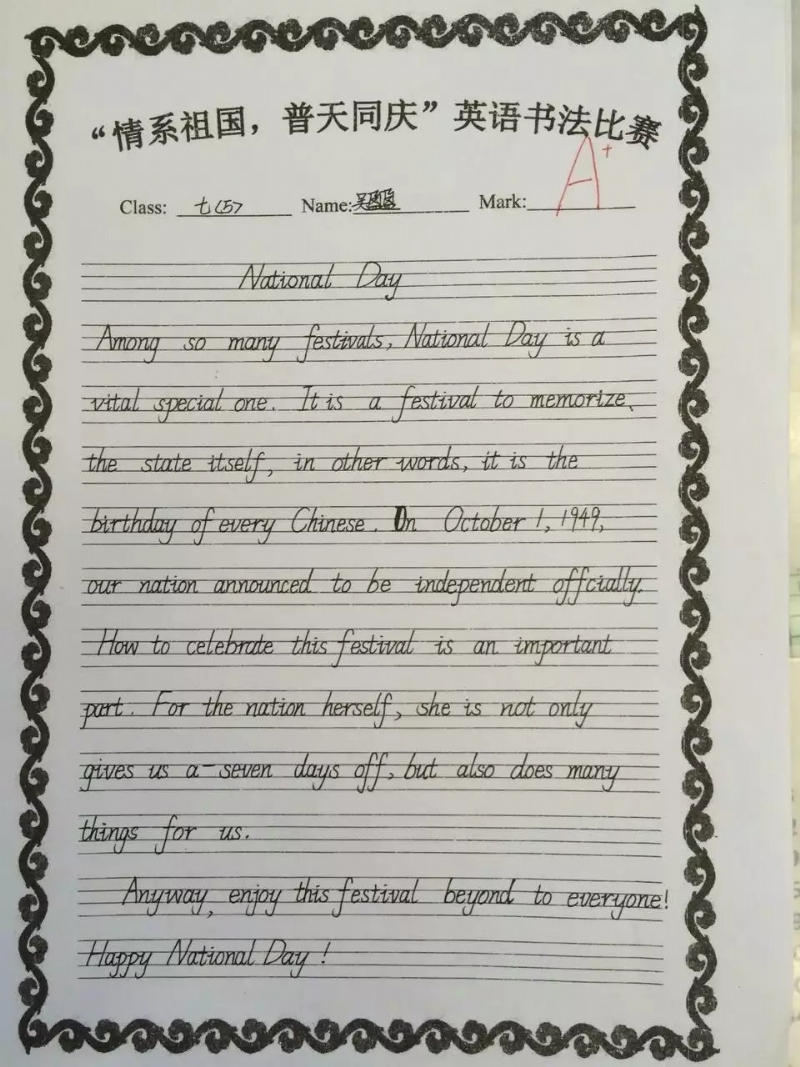 “情系祖国，普天同庆”英语书法比赛
Class: 七(5) Name: 吴 Mark: A+
National Day
Among so many festivals, National Day is a
vital special one. It is a festival to memorize
the state itself, in other words, it is the
birthday of every Chinese. On October 1, 1949,
our nation announced to be independent offcially.
How to celebrate this festival is an important
part. For the nation herself, she is not only
gives us a-seven days off, but also does many
things for us.
Anyway, enjoy this festival beyond to everyone!
Happy National Day!